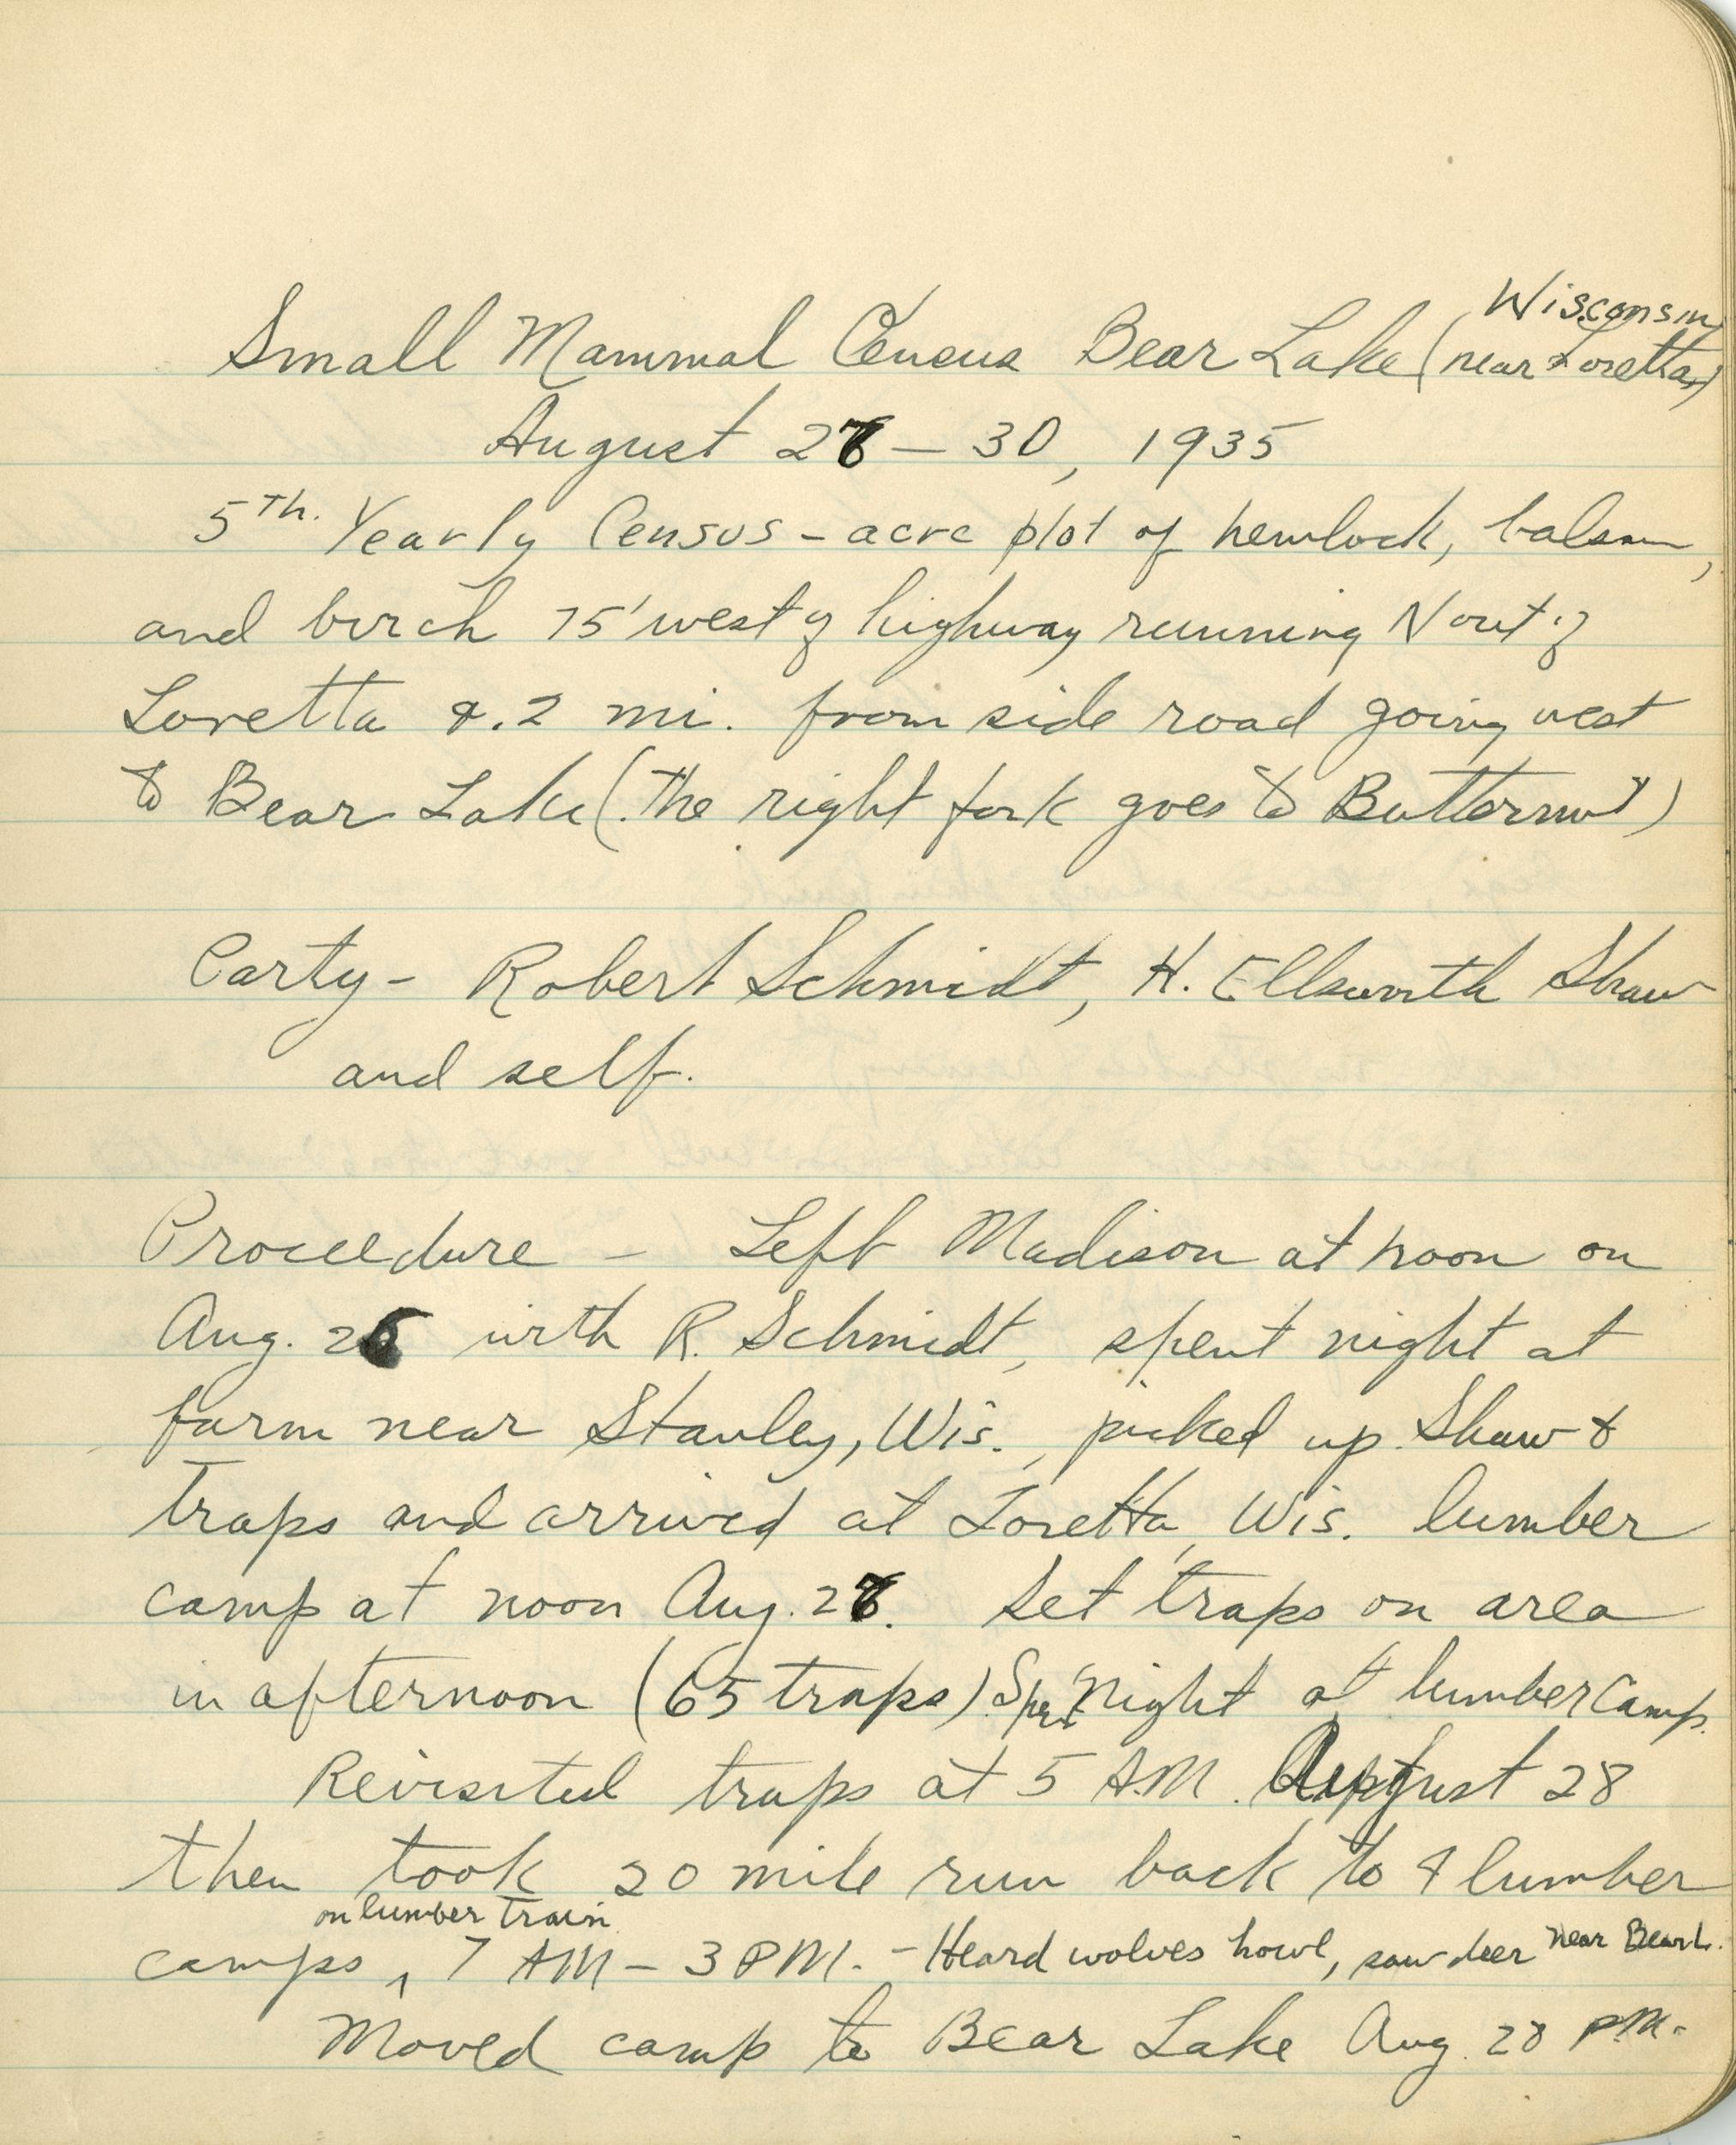 Small Mammal Census Bear Lake (near Loretta,) Wisconsin
August 27 – 30, 1935
5th. Yearly Census – acre plot of hemlock, balsam,
and birch 75' west of highway running N out of
Loretta .2 mi. from side road going west
to Bear Lake (the right fork goes to Butternut)
Party – Robert Schmidt, H. Ellsworth Shaw
and self.
Proceedure – Left Madison at noon on
Aug. 26 with R. Schmidt, spent night at
farm near Stanley, Wis., picked up Shaw &
traps and arrived at Loretta, Wis. lumber
camp at noon Aug. 27. Set traps on area
in afternoon (65 traps). Spent night at lumber camp.
Revisited traps at 5 A.M. August 28
then took 20 mile run back to 4 lumber
camps on lumber train, 7 AM – 3 PM. – Heard wolves howl, saw deer near Bear L.
Moved camp to Bear Lake Aug. 28 P.M.